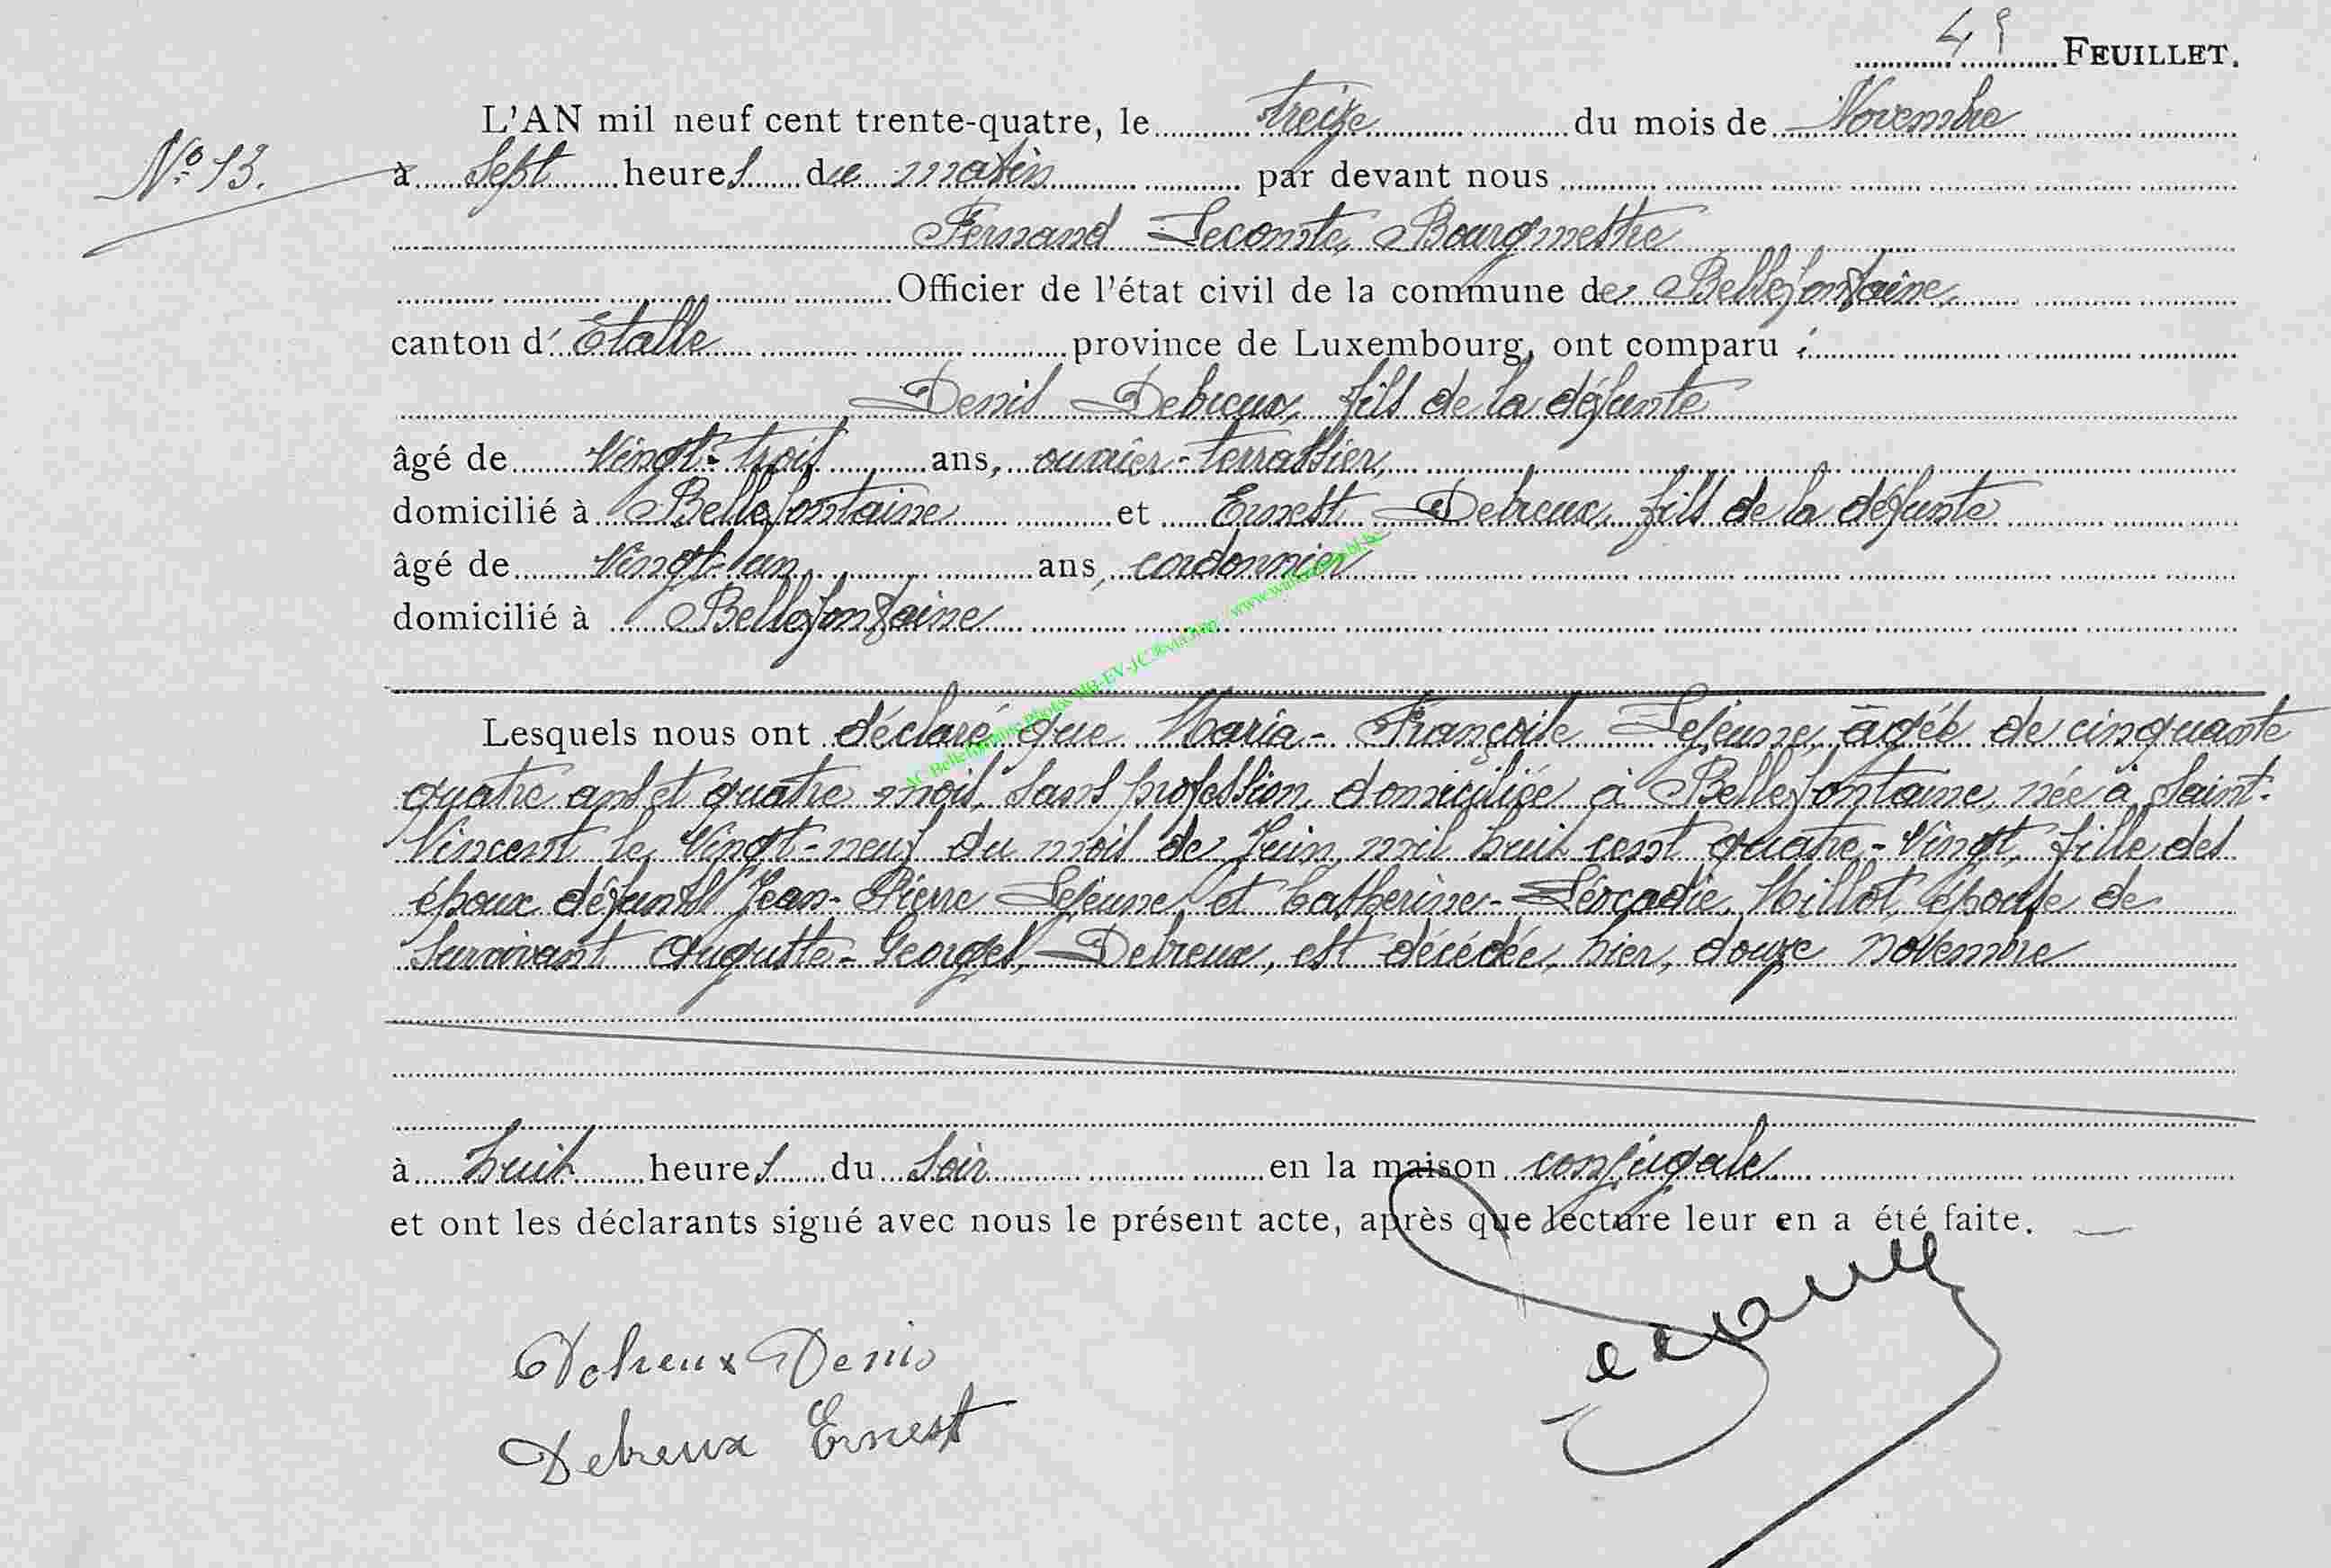 FEUILLET.
L'AN mil neuf cent trente-quatre, le treize du mois de Novembre
N° 13. à sept heures du matin par devant nous
Fernand Lecomte, Bourgmestre
Officier de l'état civil de la commune de Bellefontaine,
canton d'Etalle province de Luxembourg, ont comparu :
Denis Debreux, fils de la défunte
âgé de vingt-trois ans, ouvrier-terrassier,
domicilié à Bellefontaine et Ernest Debreux, fils de la défunte
âgé de vingt-un ans, cordonnier
domicilié à Bellefontaine
Lesquels nous ont déclaré que Maria-Françoise Lejeune, âgée de cinquante
quatre ans et quatre mois, sans profession, domiciliée à Bellefontaine, née à Saint-
Vincent le vingt-neuf du mois de Juin mil huit cent quatre-vingt, fille des
époux défunts Jean-Pierre Lejeune et Catherine-Léocadie Millot, épouse de
survivant Auguste-Georges Debreux, est décédée, hier, douze novembre
à huit heures du soir en la maison conjugale
et ont les déclarants signé avec nous le présent acte, après que lecture leur en a été faite.
Debreux Denis
Debreux Ernest